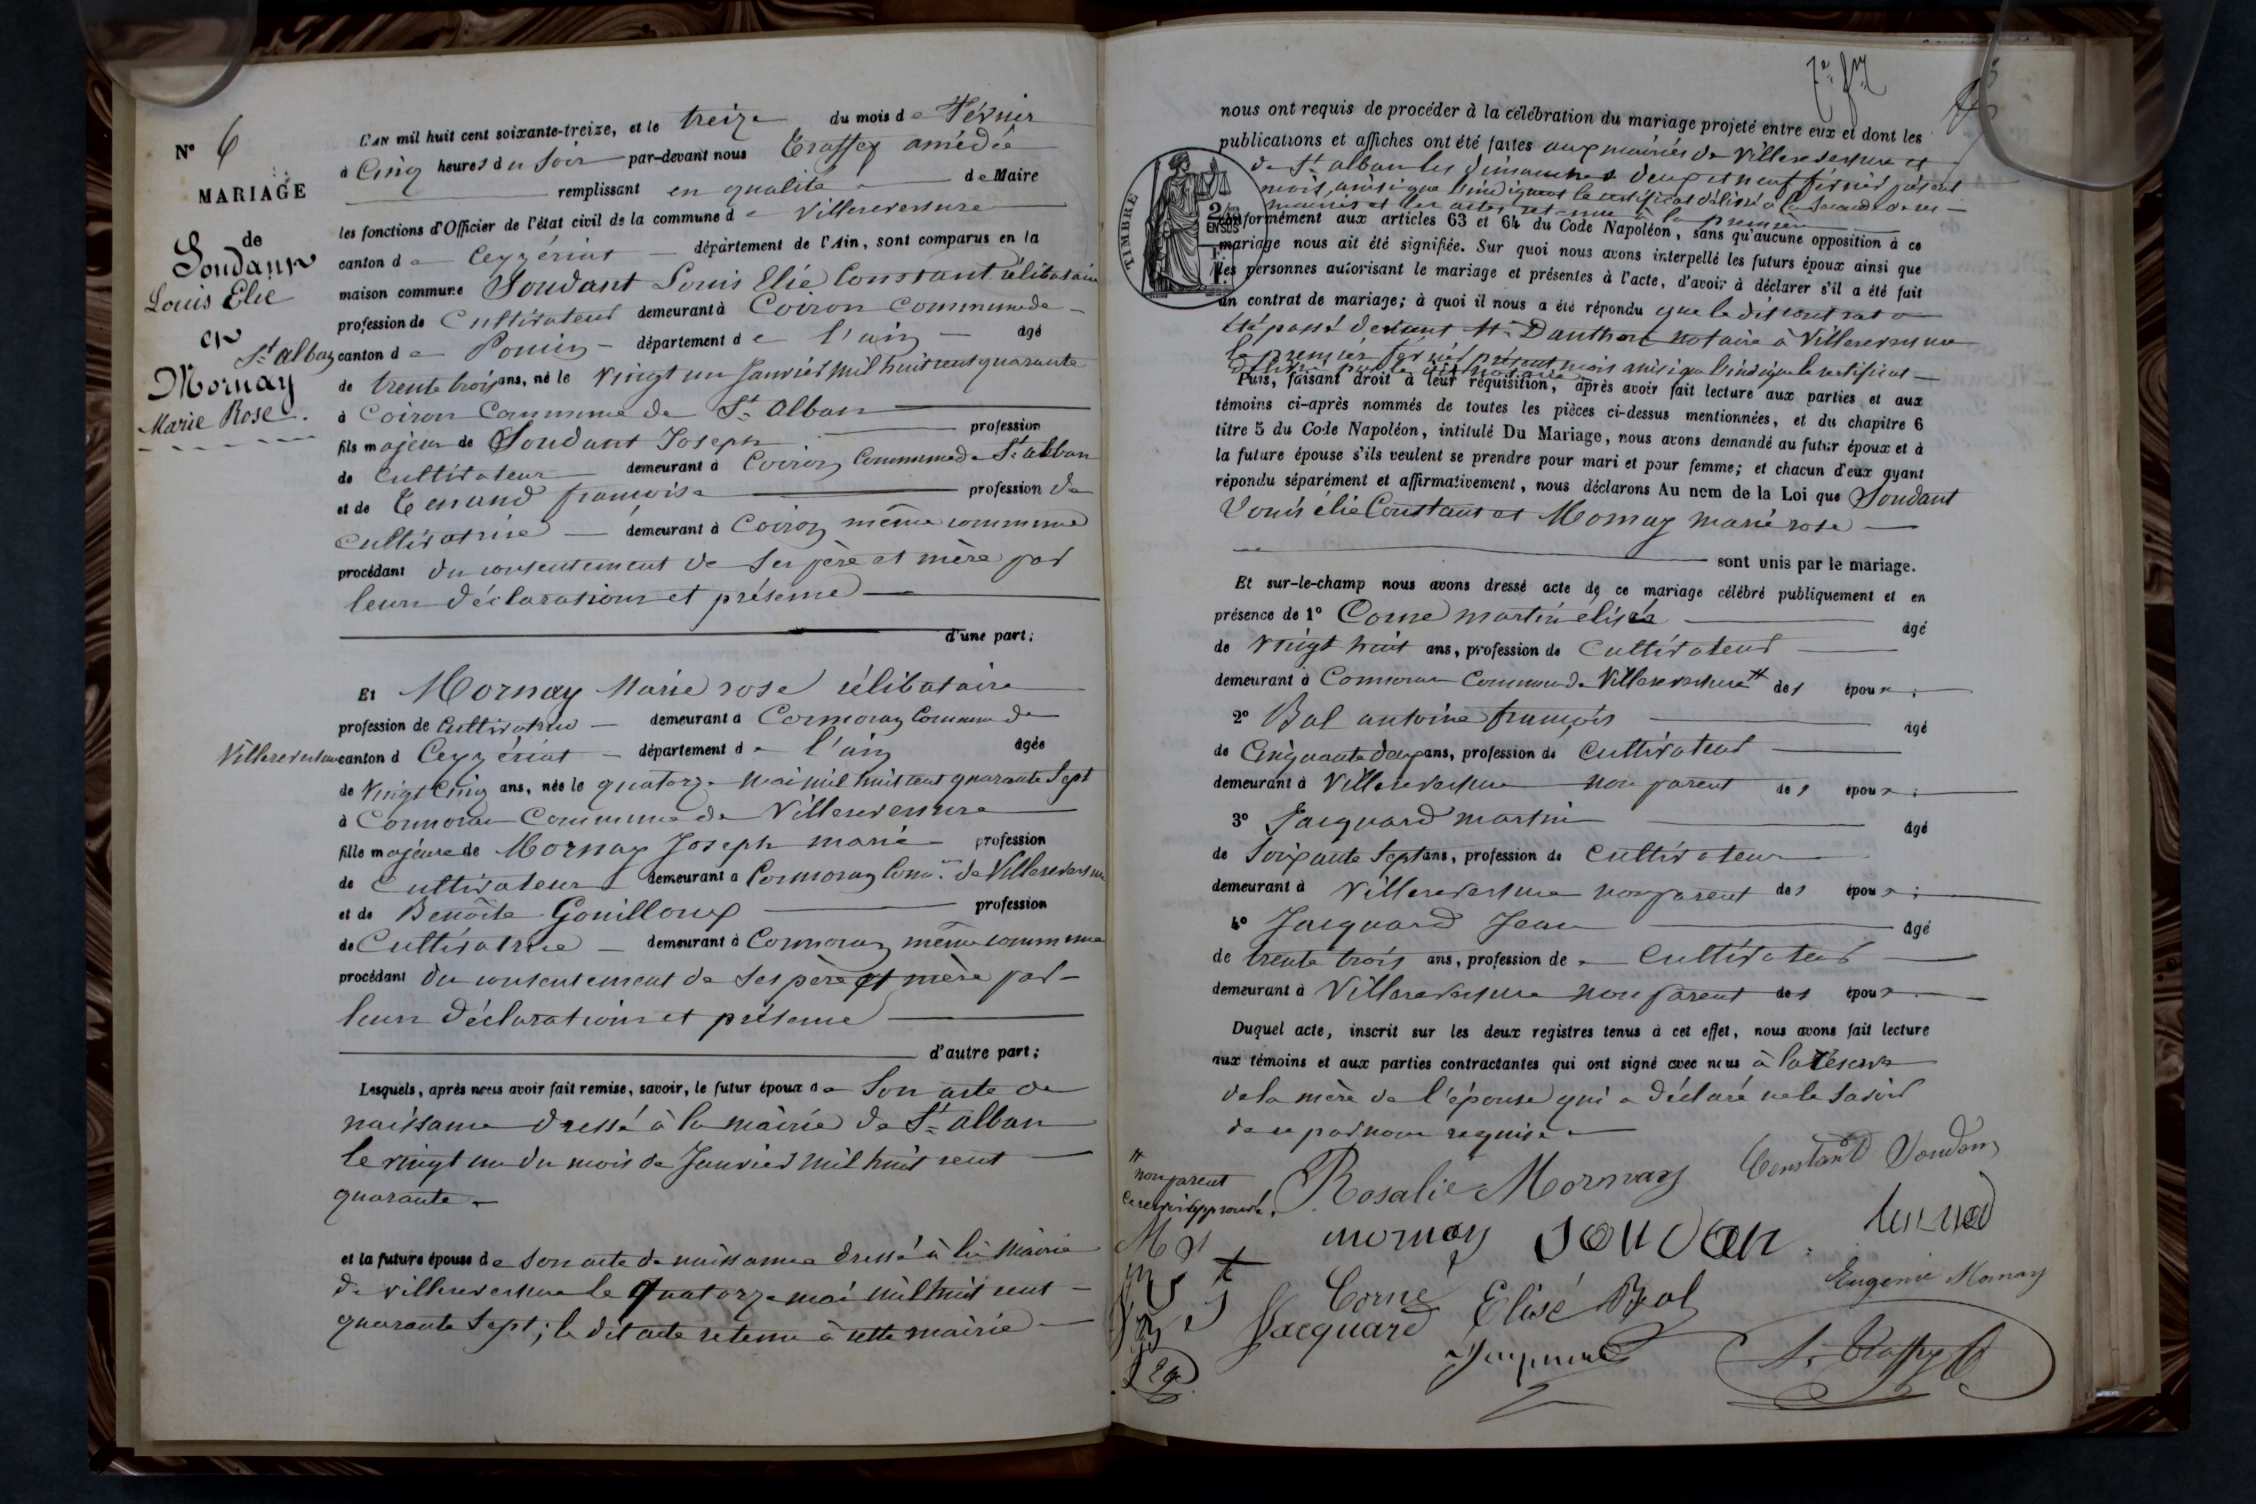 N° 6
MARIAGE
de
Soudant
Louis Elie
et
Mornay
Marie Rose.
L'AN mil huit cent soixante-treize, et le treize du mois de Février
à Cinq heures du Soir par-devant nous Traffey amédée
remplissant en qualité de Maire
les fonctions d'Officier de l'état civil de la commune de Villereversure
canton de Ceyzériat département de l'Ain, sont comparus en la
maison commune Soudant Louis Elie Constant célibataire
profession de Cultivateur demeurant à Coiron commune de
St alban canton de Poncin département de l'ain âgé
de trente trois ans, né le vingt un Janvier mil huit cent quarante
à Coiron Commune de St alban
fils majeur de Soudant Joseph profession
de Cultivateur demeurant à Coiron Commune de St alban
et de Tenand françoise profession de
Cultivatrice demeurant à Coiron même commune
procédant du consentement de ses père et mère par
leurs déclarations et présence
d'une part;
Et Mornay Marie rose célibataire
profession de Cultivatrice demeurant à Cormoran Commune de
Villereversure canton d Ceyzériat département de l'ain âgée
de Vingt Cinq ans, née le quatorze mai mil huit cent quarante Sept
à Cormoran Commune de Villereversure
fille majeure de Mornay Joseph marie profession
de Cultivateur demeurant à Cormoran Comne de Villereversure
et de Benoîte Gouilloux profession
de Cultivatrice demeurant à Cormoran même commune
procédant du consentement de ses père et mère par
leurs déclarations et présence
d'autre part;
Lesquels, après nous avoir fait remise, savoir, le futur époux de Son acte de
naissance dressé à la mairie de St alban
le vingt un du mois de Janvier mil huit cent
quarante
et la future épouse de Son acte de naissance dressé à la mairie
de villereversure le quatorze mai mil huit cent
quarante Sept; le dit acte retenu à cette mairie
nous ont requis de procéder à la célébration du mariage projeté entre eux et dont les
publications et affiches ont été faites aux mairies de Villereversure et
de St alban les dimanches deux et neuf février présent
mois, ainsi que l'indiquent le certificat délivré à la seconde de ces
mairies et les actes retenus à la première
conformément aux articles 63 et 64 du Code Napoléon, sans qu'aucune opposition à ce
mariage nous ait été signifiée. Sur quoi nous avons interpellé les futurs époux ainsi que
les personnes autorisant le mariage et présentes à l'acte, d'avoir à déclarer s'il a été fait
un contrat de mariage; à quoi il nous a été répondu que le dit contrat a
été passé devant Me Danthon notaire à Villereversure
le premier février présent mois ainsi que l'indique le certificat
délivré par le dit notaire
Puis, faisant droit à leur réquisition, après avoir fait lecture aux parties et aux
témoins ci-après nommés de toutes les pièces ci-dessus mentionnées, et du chapitre 6
titre 5 du Code Napoléon, intitulé Du Mariage, nous avons demandé au futur époux et à
la future épouse s'ils veulent se prendre pour mari et pour femme; et chacun d'eux ayant
répondu séparément et affirmativement, nous déclarons Au nom de la Loi que Soudant
Louis élie Constant et Mornay marie rose
sont unis par le mariage.
Et sur-le-champ nous avons dressé acte de ce mariage célébré publiquement et en
présence de 1° Corne martin élisée âgé
de vingt huit ans, profession de Cultivateur
demeurant à Cormoran Commune de Villereversure # des époux;
2° Bal antoine françois âgé
de Cinquante deux ans, profession de Cultivateur
demeurant à Villereversure non parent des époux;
3° Jacquard martin âgé
de Soixante Sept ans, profession de Cultivateur
demeurant à Villereversure non parent des époux;
4° Jacquard Jean âgé
de trente trois ans, profession de Cultivateur
demeurant à Villereversure non parent des époux
Duquel acte, inscrit sur les deux registres tenus à cet effet, nous avons fait lecture
aux témoins et aux parties contractantes qui ont signé avec nous à la réserve
de la mère de l'épouse qui a déclaré ne le savoir
de ce par nous requise
# non parent
ce renvoi approuvé.
Rosalie Mornay Constant Soudan
mornay SOUDAN tenand
Corne Elisé Bal Eugenie Mornay
Jacquard
Jacquard A. Traffey
TIMBRE
2/10 EN SUS